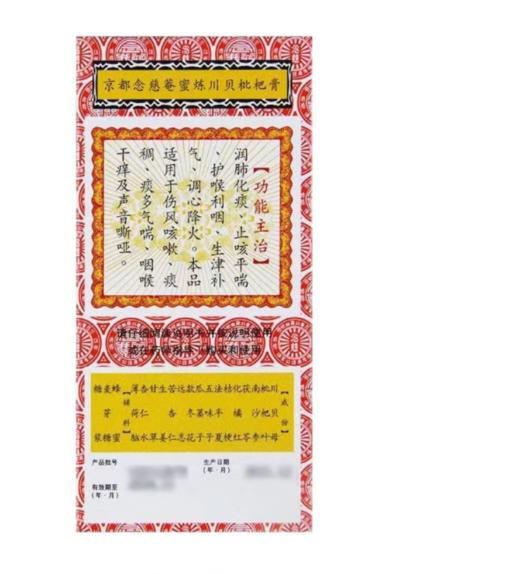 京都念慈菴蜜炼川贝枇杷膏
【功能主治】
润肺化痰、止咳平喘
、护喉利咽、生津补
气、调心降火。本品
适用于伤风咳嗽、痰
稠、痰多气喘、咽喉
干痒及声音嘶哑。
请仔细阅读说明书并按说明使用
或在药师指导下购买和使用
【成份】
川贝母
枇杷叶
南沙参
茯苓
化橘红
桔梗
法半夏
五味子
瓜蒌子
款冬花
远志
苦杏仁
生姜
甘草
杏仁水
薄荷脑
【辅料】
蜂蜜
麦芽糖
糖浆
产品批号
生产日期
(年·月)
有效期至
(年·月)